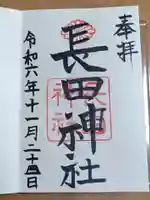 奉拝
長田神社
令和六年十一月二十四日